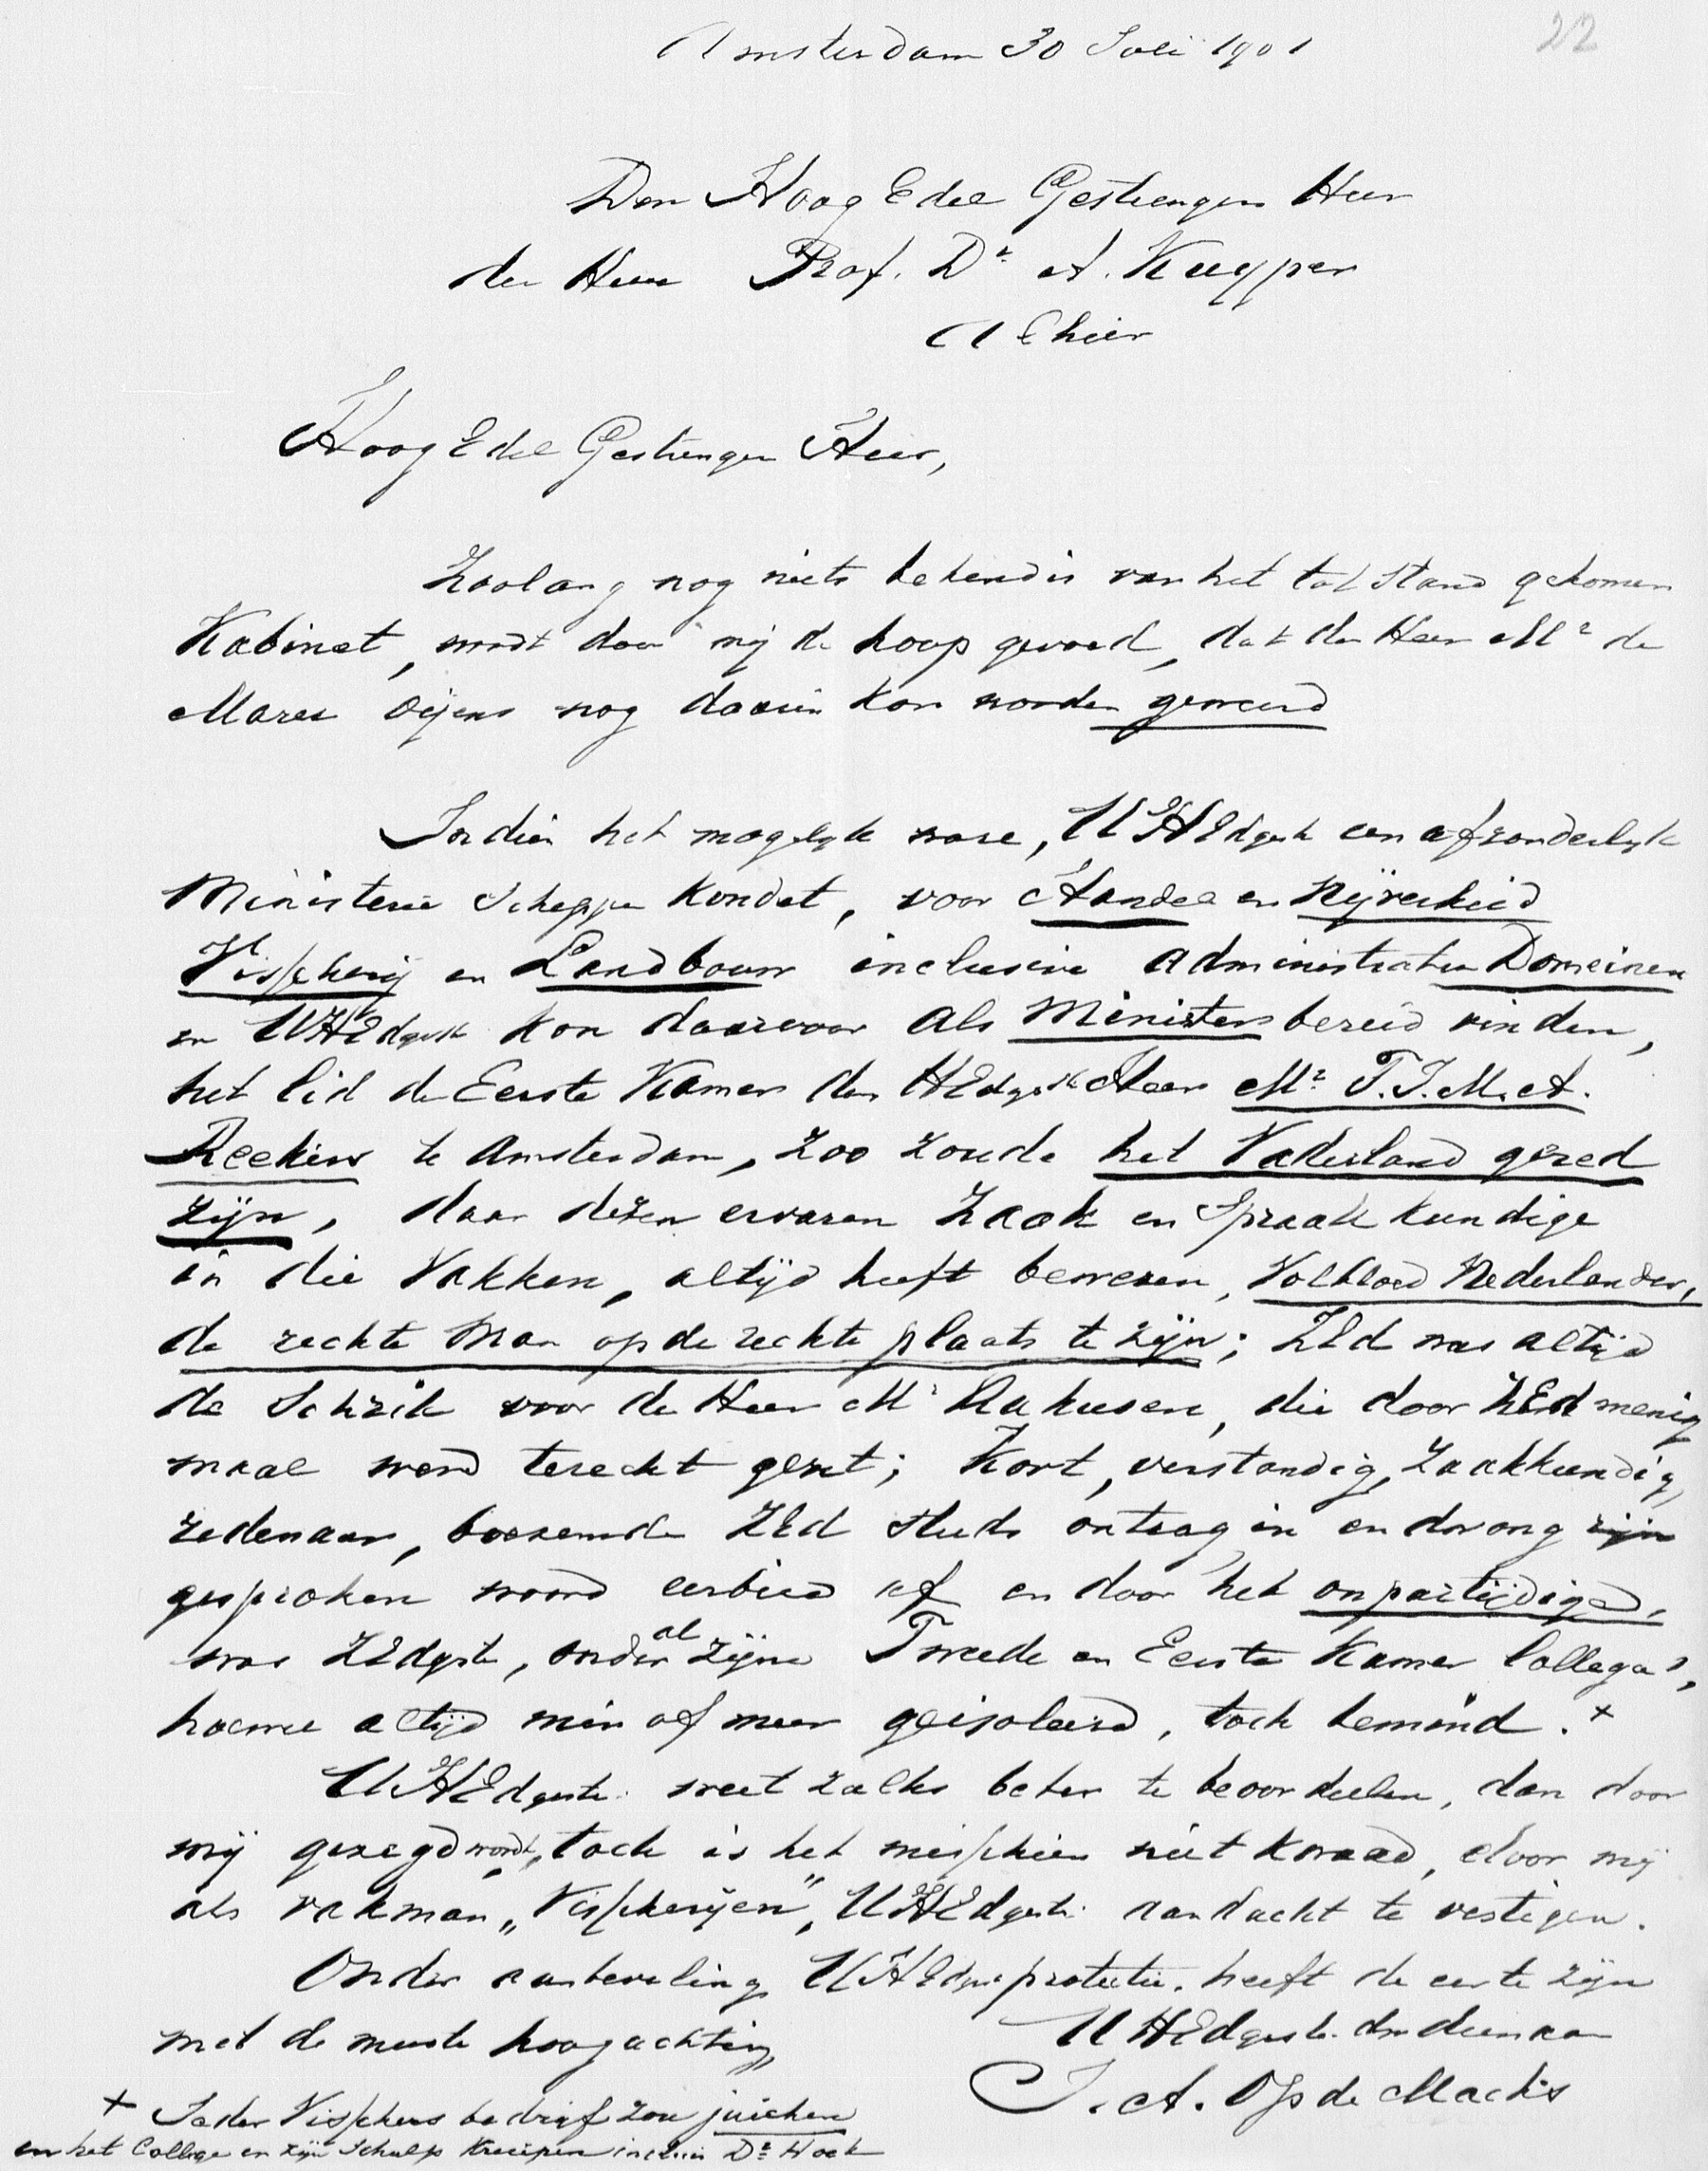 22
Amsterdam 30 Juli 1901
Den Hoog Edel Gestrengen Heer
den Heer Prof. Dr. A. Kuyper
Alhier
Hoog Edel Gestrengen Heer,
Zoolang nog niets bekend is van het tot stand gekomen
Kabinet, wordt door mij de hoop gevoed, dat den Heer Mr de
Marez Oijens nog daarin kon worden geweerd
Indien het mogelijk ware, UHEdgest een afzonderlijk
Ministerie scheppen kondet, voor Handel en Nijverheid
Visscherij en Landbouw inclusive administratien Domeinen
en UHEdgestr kon daarvoor als Minister bereid vinden,
het lid de Eerste Kamer den HEdgestr Heer Mr. T.J.M.A.
Reekers te Amsterdam, zoo zoude het Vaderland gered
zijn, daar dezen ervaren Zaak en Spraakkundige
in die Vakken, altijd heeft bewezen, Volbloed Nederlander,
de rechte man op de rechte plaats te zijn; ZEd was altijd
de Schrik voor de Heer Mr Rahusen, die door ZEd menig
maal werd terecht gezet; Kort, verstandig, zaakkundig,
redenaar, boezemde ZEd steeds ontzag in en dwong zijn
gesproken woord eerbied af en door het onpartijdige,
was ZEdgestr, onder al zijne Tweede en Eerste Kamer Collega's,
hoewel altijd min of meer geisoleerd, toch bemind. +
UHEdgestr. weet zulks beter te beoordeelen, dan door
mij gezegd wordt, toch is het misschien niet kwaad, door mij
als vakman „Visscherijen", UHEdgestr. aandacht te vestigen.
Onder aanbeveling UHEdgestr protectie. heeft de eer te zijn
met de meeste hoogachting,
UHEdgestr. dw dienaar
J. A. Op de Macks
+ Ieder Visschers bedrijf zou juichen
en het College en zijn Schulp kruipen incluis Dr. Hoek